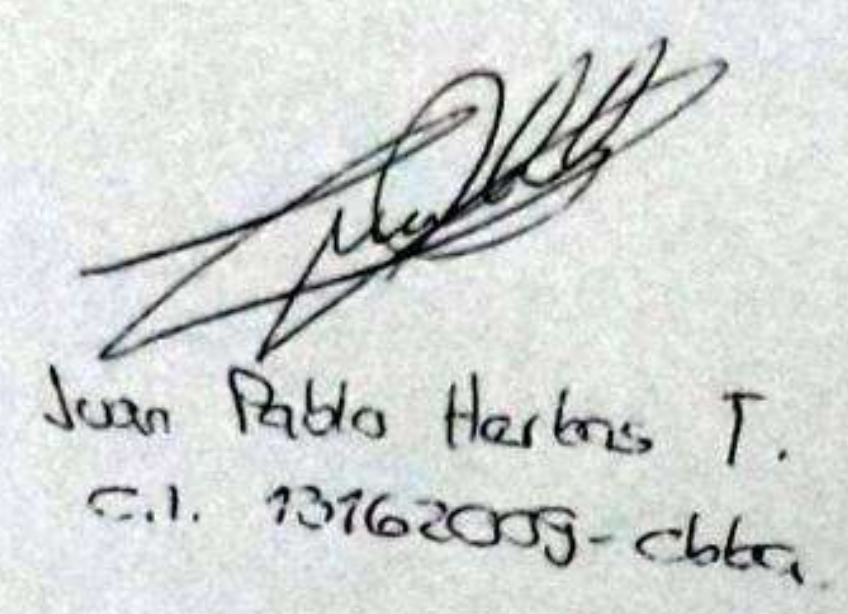 Juan Pablo Herbas T.
C.I. 13162009-cbba.